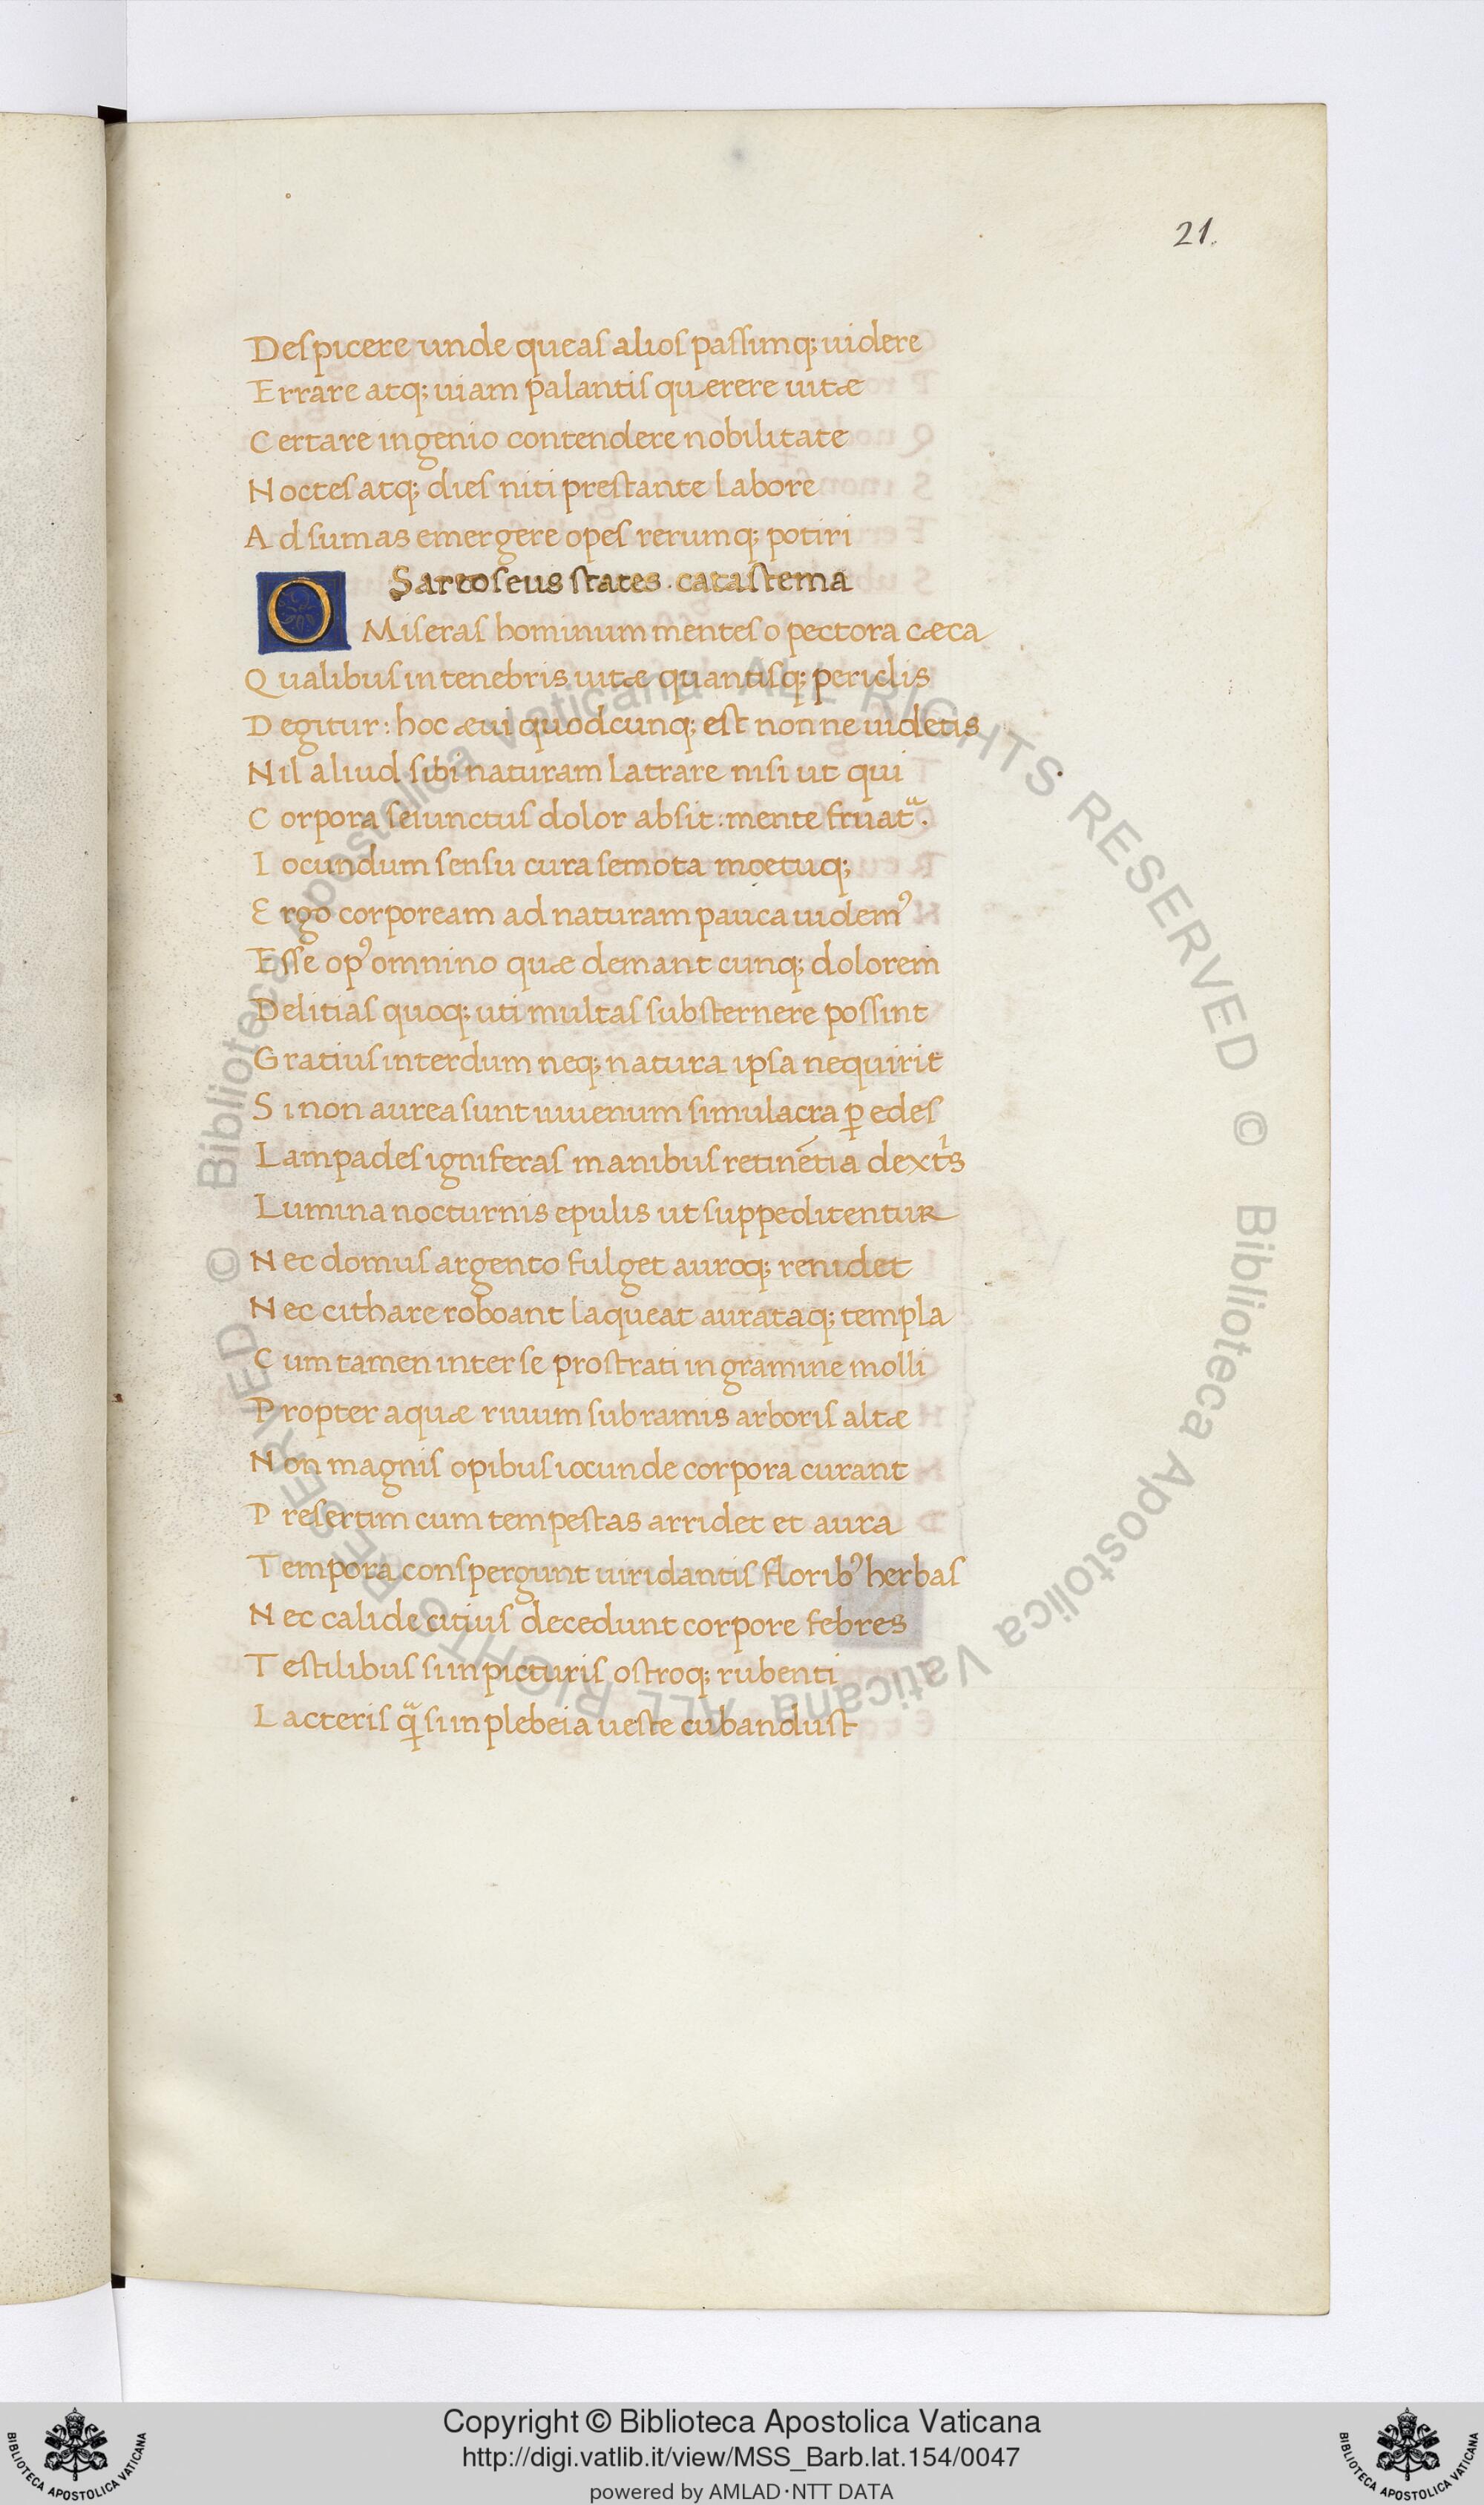 21.
Despicere unde queas alios passimq; uidere
Errare atq; uiam palantis querere uitæ
Certare ingenio contendere nobilitate
Noctes atq; dies niti prestante labore
Ad sumas emergere opes rerumq; potiri
Sareoseus states . catastema
O Miseras hominum mentes o pectora cæca
Qualibus in tenebris uitæ quantisq; periclis
Degitur: hoc æui quodcunq; est nonne uidetis
Nil aliud sibi naturam latrare nisi ut qui
Corpora seiunctus dolor absit: mente fruat᷑.
Iocundum sensu cura semota moetuq;
Ergo corpoream ad naturam pauca uidemꝰ
Esse opꝰ omnino quæ demant cunq; dolorem
Delitias quoq; uti multas substernere possint
Gratius interdum neq; natura ipsa nequirit
Si non aurea sunt iuuenum simulacra ꝑ edes
Lampades igniferas manibus retinētia dextͥs
Lumina nocturnis epulis ut suppeditentur
Nec domus argento fulget auroq; renidet
Nec cithare roboant laqueat aurataq; templa
Cum tamen inter se prostrati in gramine molli
Propter aquæ riuum sub ramis arboris altæ
Non magnis opibus iocunde corpora curant
Presertim cum tempestas arridet et aura
Tempora conspergunt uiridantis floribꝰ herbas
Nec calide citius decedunt corpore febres
Testilibus si in picturis ostroq; rubenti
Lacteris ꝗ̃ si in plebeia ueste cubandust
© Biblioteca Apostolica Vaticana ALL RIGHTS RESERVED © Biblioteca Apostolica Vaticana ALL RIGHTS RESERVED
Copyright © Biblioteca Apostolica Vaticana
http://digi.vatlib.it/view/MSS_Barb.lat.154/0047
powered by AMLAD·NTT DATA
BIBLIOTECA APOSTOLICA VATICANA
BIBLIOTECA APOSTOLICA VATICANA